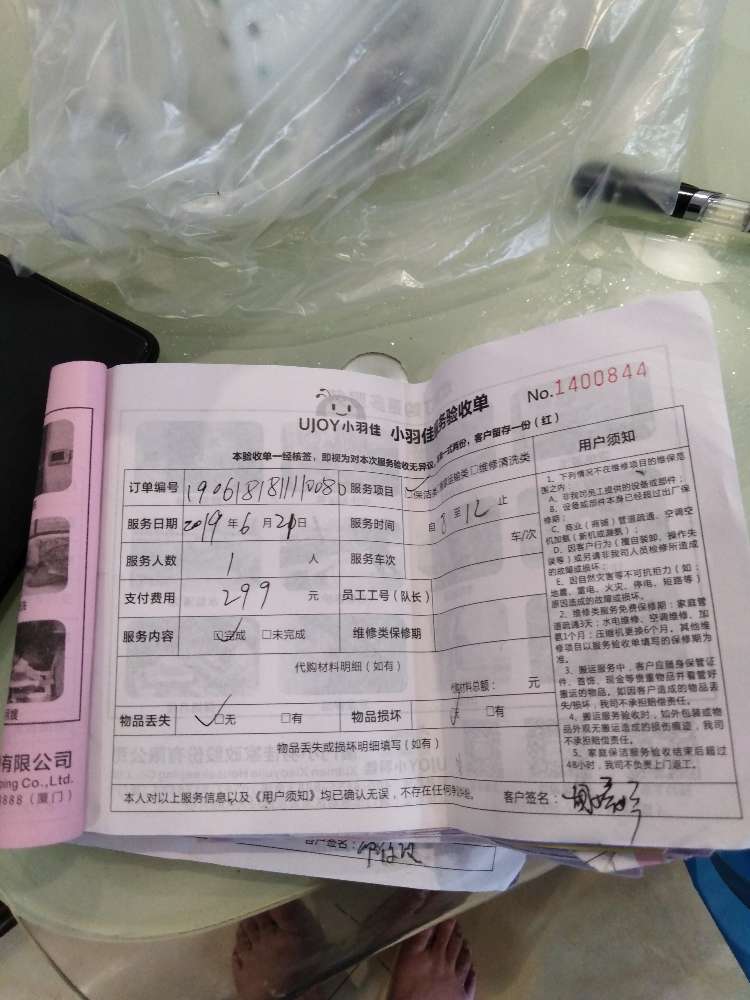 No.1400844
UJOY小羽佳 小羽佳服务验收单
本验收单一经核签，即视为对本次服务验收无异议，一式两份，客户留存一份（红）
订单编号 服务项目 保洁类 搬家运输类 □维修清洗类
服务日期 2019年6月21日 服务时间 自8至12止
服务人数 1 人 服务车次 车/次
支付费用 299 元 员工工号（队长）
服务内容 ☑完成 □未完成 维修类保修期
代购材料明细（如有）
代购材料总额： 元
物品丢失 ☑无 □有 物品损坏 ☑无 □有
物品丢失或损坏明细填写（如有）
本人对以上服务信息以及《用户须知》均已确认无误，不存在任何 客户签名：
用户须知
1、下列情况不在维修项目的维保范
围之内：
A、非我司员工提供的设备或部件；
B、设备或部件本身已经超过出厂保
修期；
C、商业（商铺）管道疏通、空调空
机加氨（新机或漏氨）；
D、因客户行为（擅自装卸、操作失
误等）或另请非我司人员检修所造成
的故障或损坏；
E、因自然灾害等不可抗力（如：
地震、雷电、火灾、停电、短路等）
原因造成的故障或损坏。
2、维修类服务免费保修期：家庭管
道疏通3天；水电维修、空调维修、加
氨1个月；压缩机更换6个月。其他维
修项目以服务验收单填写的保修期为
准。
3、搬运服务中，客户应随身保管证
件、首饰、现金等贵重物品并看管好
搬运的物品。如因客户造成的物品丢
失/损坏，我司不承担赔偿责任。
4、搬运服务验收时，如外包装或物
品外观无搬运造成的损伤痕迹，我司
不承担赔偿责任。
5、家庭保洁服务验收结束后超过
48小时，我司不负责上门返工。
有限公司
ping Co.,Ltd.
8888（厦门）
客户签名：